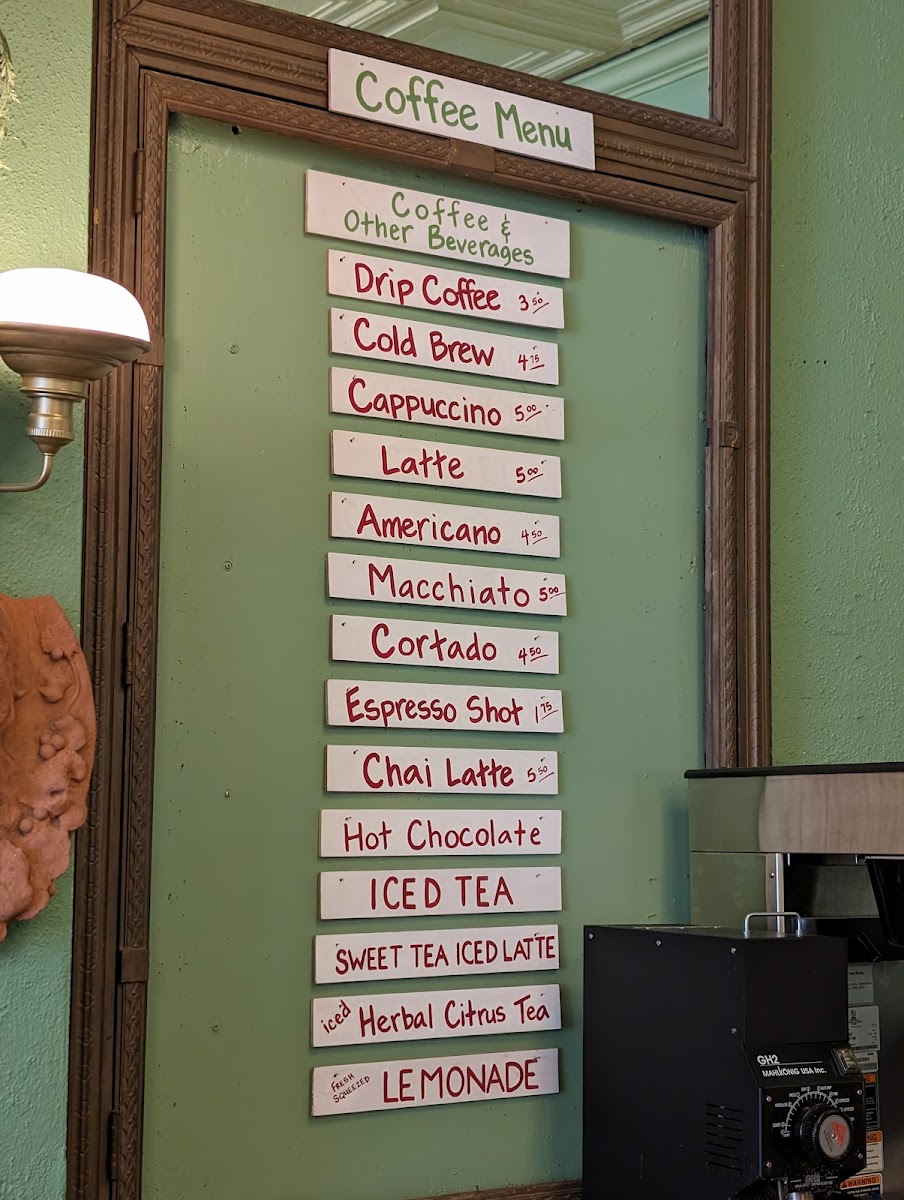 Coffee Menu
Coffee &
Other Beverages
Drip Coffee 3 50
Cold Brew 4 75
Cappuccino 5 00
Latte 5 00
Americano 4 50
Macchiato 5 00
Cortado 4 50
Espresso Shot 1 75
Chai Latte 5 50
Hot Chocolate
ICED TEA
SWEET TEA ICED LATTE
iced Herbal Citrus Tea
FRESH
SQUEEZED LEMONADE
GH2
MAHLKÖNIG USA Inc.
WARNING